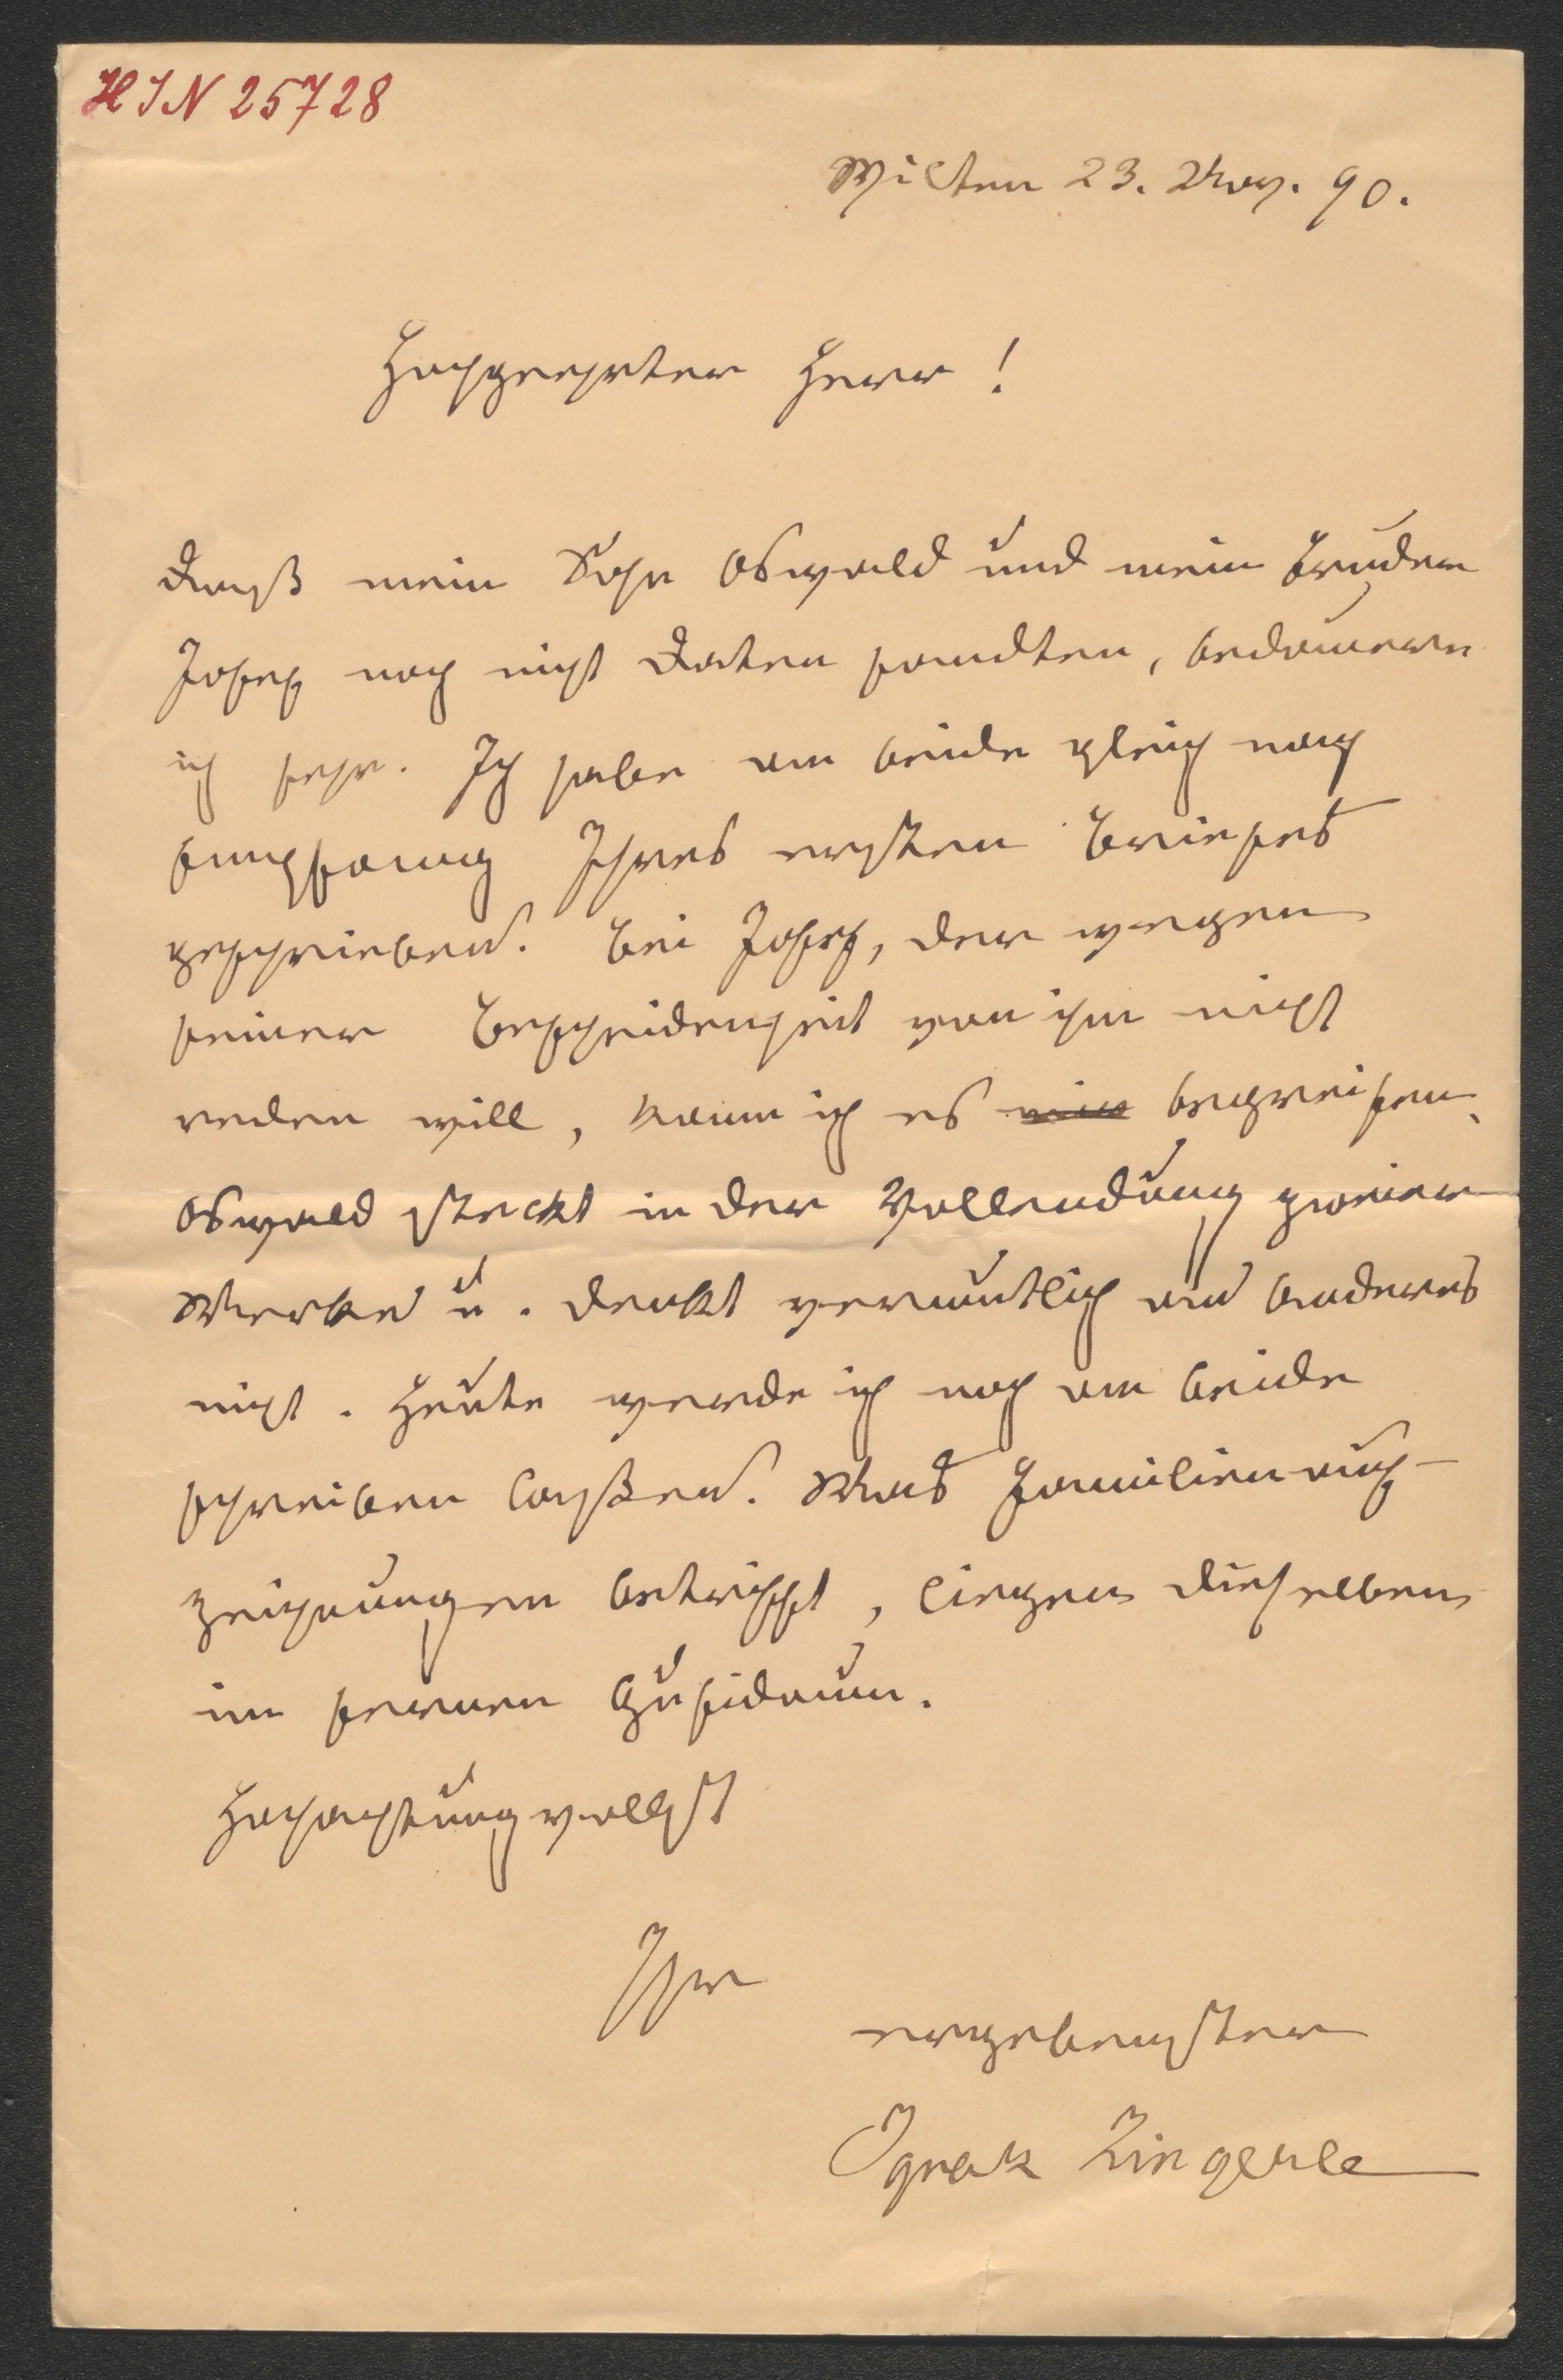 HIN 25728
Wilten 23. Nov. 90.
Hochgeehrter Herr!
Daß mein Sohn Oswald und mein Bruder
Josef noch nicht Daten sandten, bedauere
ich sehr. Ich habe an beide gleich nach
Empfang Ihres ersten Briefes
geschrieben. Bei Josef, der wegen
seiner Bescheidenheit von ihm nicht
reden will, kann ich es begreifen.
Oswald steckt in der Vollendung zweier
Werke u. denkt vermutlich an Anderes
nicht. Heute werde ich noch an beide
schreiben laßen. Was Familienauf-
zeichnungen betrifft, liegen dieselben
im fernen Gufidaun.
Hochachtungvollst
Ihr
ergebenster
Ignaz Zingerle